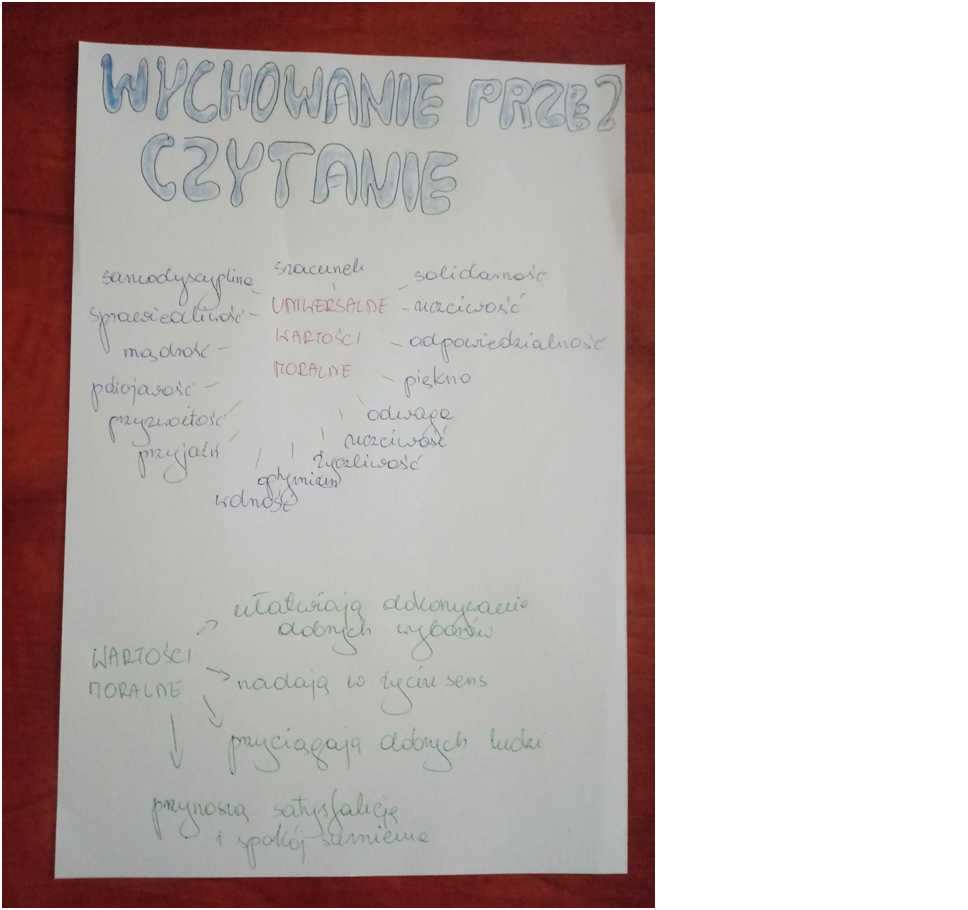 WYCHOWANIE PRZEZ
CZYTANIE
szacunek
samodyscyplina
solidarność
UNIWERSALNE
uczciwość
sprawiedliwość
WARTOŚCI
odpowiedzialność
mądrość
MORALNE
piękno
pokojowość
odwaga
przyzwoitość
uczciwość
przyjaźń
życzliwość
optymizm
wolność
ułatwiają dokonywanie
dobrych wyborów
WARTOŚCI
MORALNE
nadają w życiu sens
przyciągają dobrych ludzi
przynoszą satysfakcję
i spokój sumienia